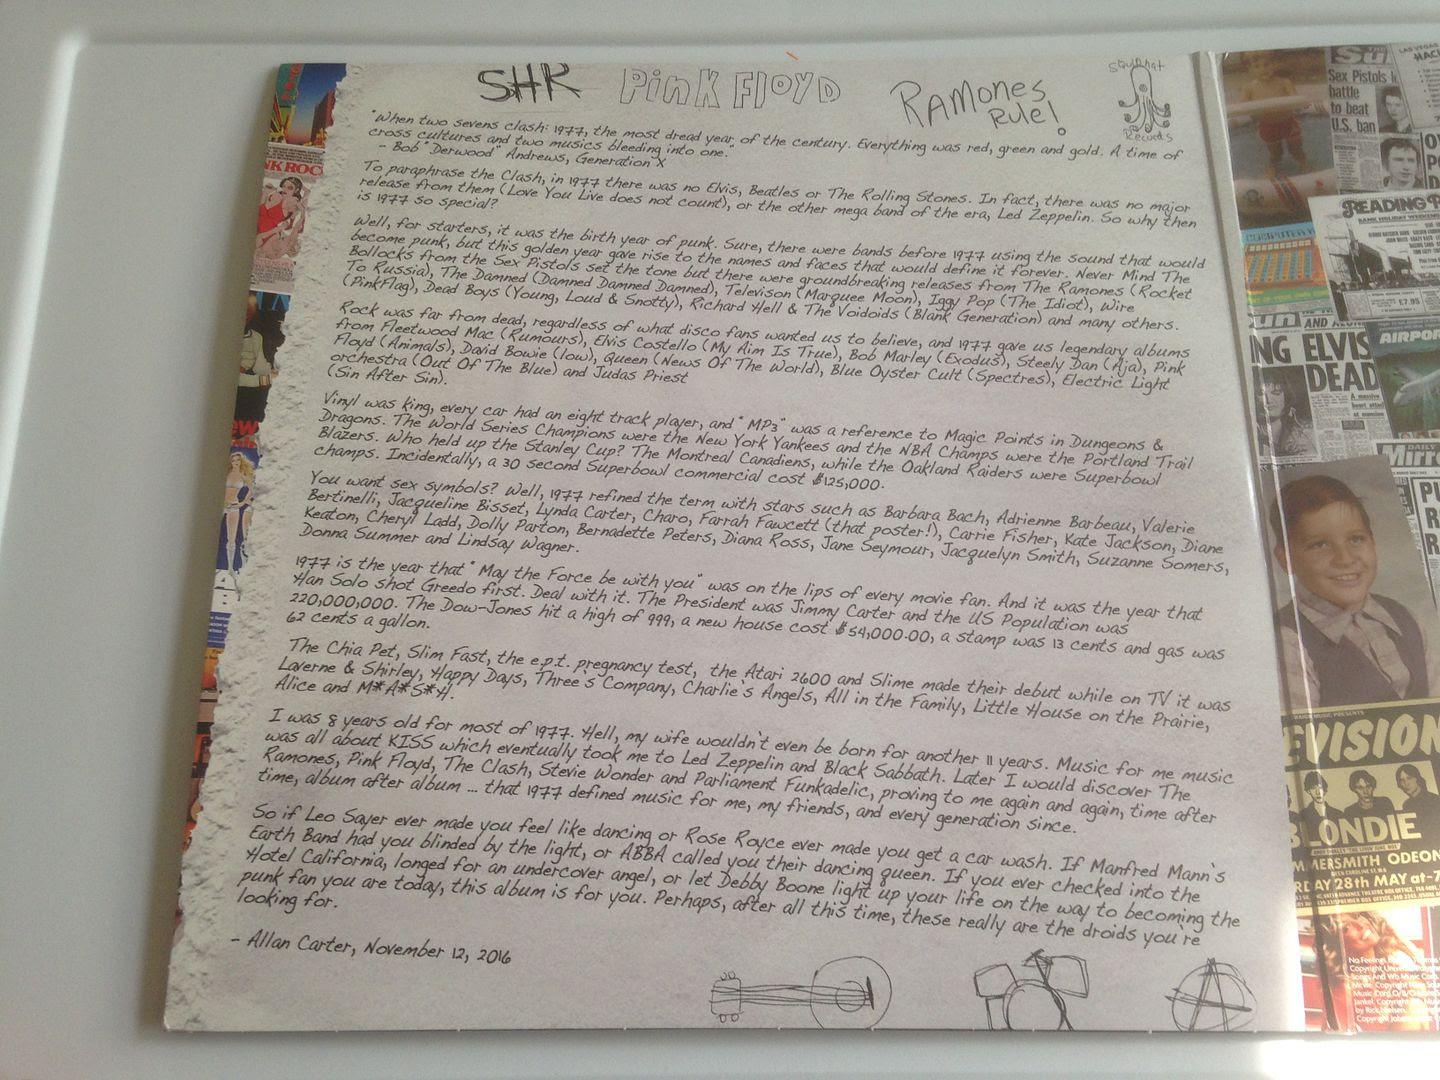 SHR PINK FLOYD RAMONES RULE! Squidhat Records
"When two sevens clash: 1977, the most dread year of the century. Everything was red, green and gold. A time of
cross cultures and two musics bleeding into one."
- Bob "Derwood" Andrews, Generation X
To paraphrase the Clash, in 1977 there was no Elvis, Beatles or The Rolling Stones. In fact, there was no major
release from them (Love You Live does not count), or the other mega band of the era, Led Zeppelin. So why then
is 1977 so special?
Well, for starters, it was the birth year of punk. Sure, there were bands before 1977 using the sound that would
become punk, but this golden year gave rise to the names and faces that would define it forever. Never Mind The
Bollocks from the Sex Pistols set the tone but there were groundbreaking releases from The Ramones (Rocket
To Russia), The Damned (Damned Damned Damned), Televison (Marquee Moon), Iggy Pop (The Idiot), Wire
(PinkFlag), Dead Boys (Young, Loud & Snotty), Richard Hell & The Voidoids (Blank Generation) and many others.
Rock was far from dead, regardless of what disco fans wanted us to believe, and 1977 gave us legendary albums
from Fleetwood Mac (Rumours), Elvis Costello (My Aim Is True), Bob Marley (Exodus), Steely Dan (Aja), Pink
Floyd (Animals), David Bowie (low), Queen (News Of The World), Blue Oyster Cult (Spectres), Electric Light
orchestra (Out Of The Blue) and Judas Priest
(Sin After Sin).
Vinyl was king, every car had an eight track player, and "MP3" was a reference to Magic Points in Dungeons &
Dragons. The World Series Champions were the New York Yankees and the NBA Champs were the Portland Trail
Blazers. Who held up the Stanley Cup? The Montreal Canadiens, while the Oakland Raiders were Superbowl
champs. Incidentally, a 30 second Superbowl commercial cost $125,000.
You want sex symbols? Well, 1977 refined the term with stars such as Barbara Bach, Adrienne Barbeau, Valerie
Bertinelli, Jacqueline Bisset, Lynda Carter, Charo, Farrah Fawcett (that poster!), Carrie Fisher, Kate Jackson, Diane
Keaton, Cheryl Ladd, Dolly Parton, Bernadette Peters, Diana Ross, Jane Seymour, Jacquelyn Smith, Suzanne Somers,
Donna Summer and Lindsay Wagner.
1977 is the year that "May the Force be with you" was on the lips of every movie fan. And it was the year that
Han Solo shot Greedo first. Deal with it. The President was Jimmy Carter and the US Population was
220,000,000. The Dow-Jones hit a high of 999, a new house cost $54,000.00, a stamp was 13 cents and gas was
62 cents a gallon.
The Chia Pet, Slim Fast, the e.p.t. pregnancy test, the Atari 2600 and Slime made their debut while on TV it was
Laverne & Shirley, Happy Days, Three's Company, Charlie's Angels, All in the Family, Little House on the Prairie,
Alice and M*A*S*H.
I was 8 years old for most of 1977. Hell, my wife wouldn't even be born for another 11 years. Music for me music
was all about KISS which eventually took me to Led Zeppelin and Black Sabbath. Later I would discover The
Ramones, Pink Floyd, The Clash, Stevie Wonder and Parliament Funkadelic, proving to me again and again, time after
time, album after album ... that 1977 defined music for me, my friends, and every generation since.
So if Leo Sayer ever made you feel like dancing or Rose Royce ever made you get a car wash. If Manfred Mann's
Earth Band had you blinded by the light, or ABBA called you their dancing queen. If you ever checked into the
Hotel California, longed for an undercover angel, or let Debby Boone light up your life on the way to becoming the
punk fan you are today, this album is for you. Perhaps, after all this time, these really are the droids you're
looking for.
- Allan Carter, November 12, 2016
NK ROC
Su
Sex Pistols
battle
to beat
U.S. ban
READING
£7.95
NG ELVIS
DEAD
AIRPOR
Mirro
EVISION
BLONDIE
MMERSMITH ODEON
RDAY 28th MAY at-7